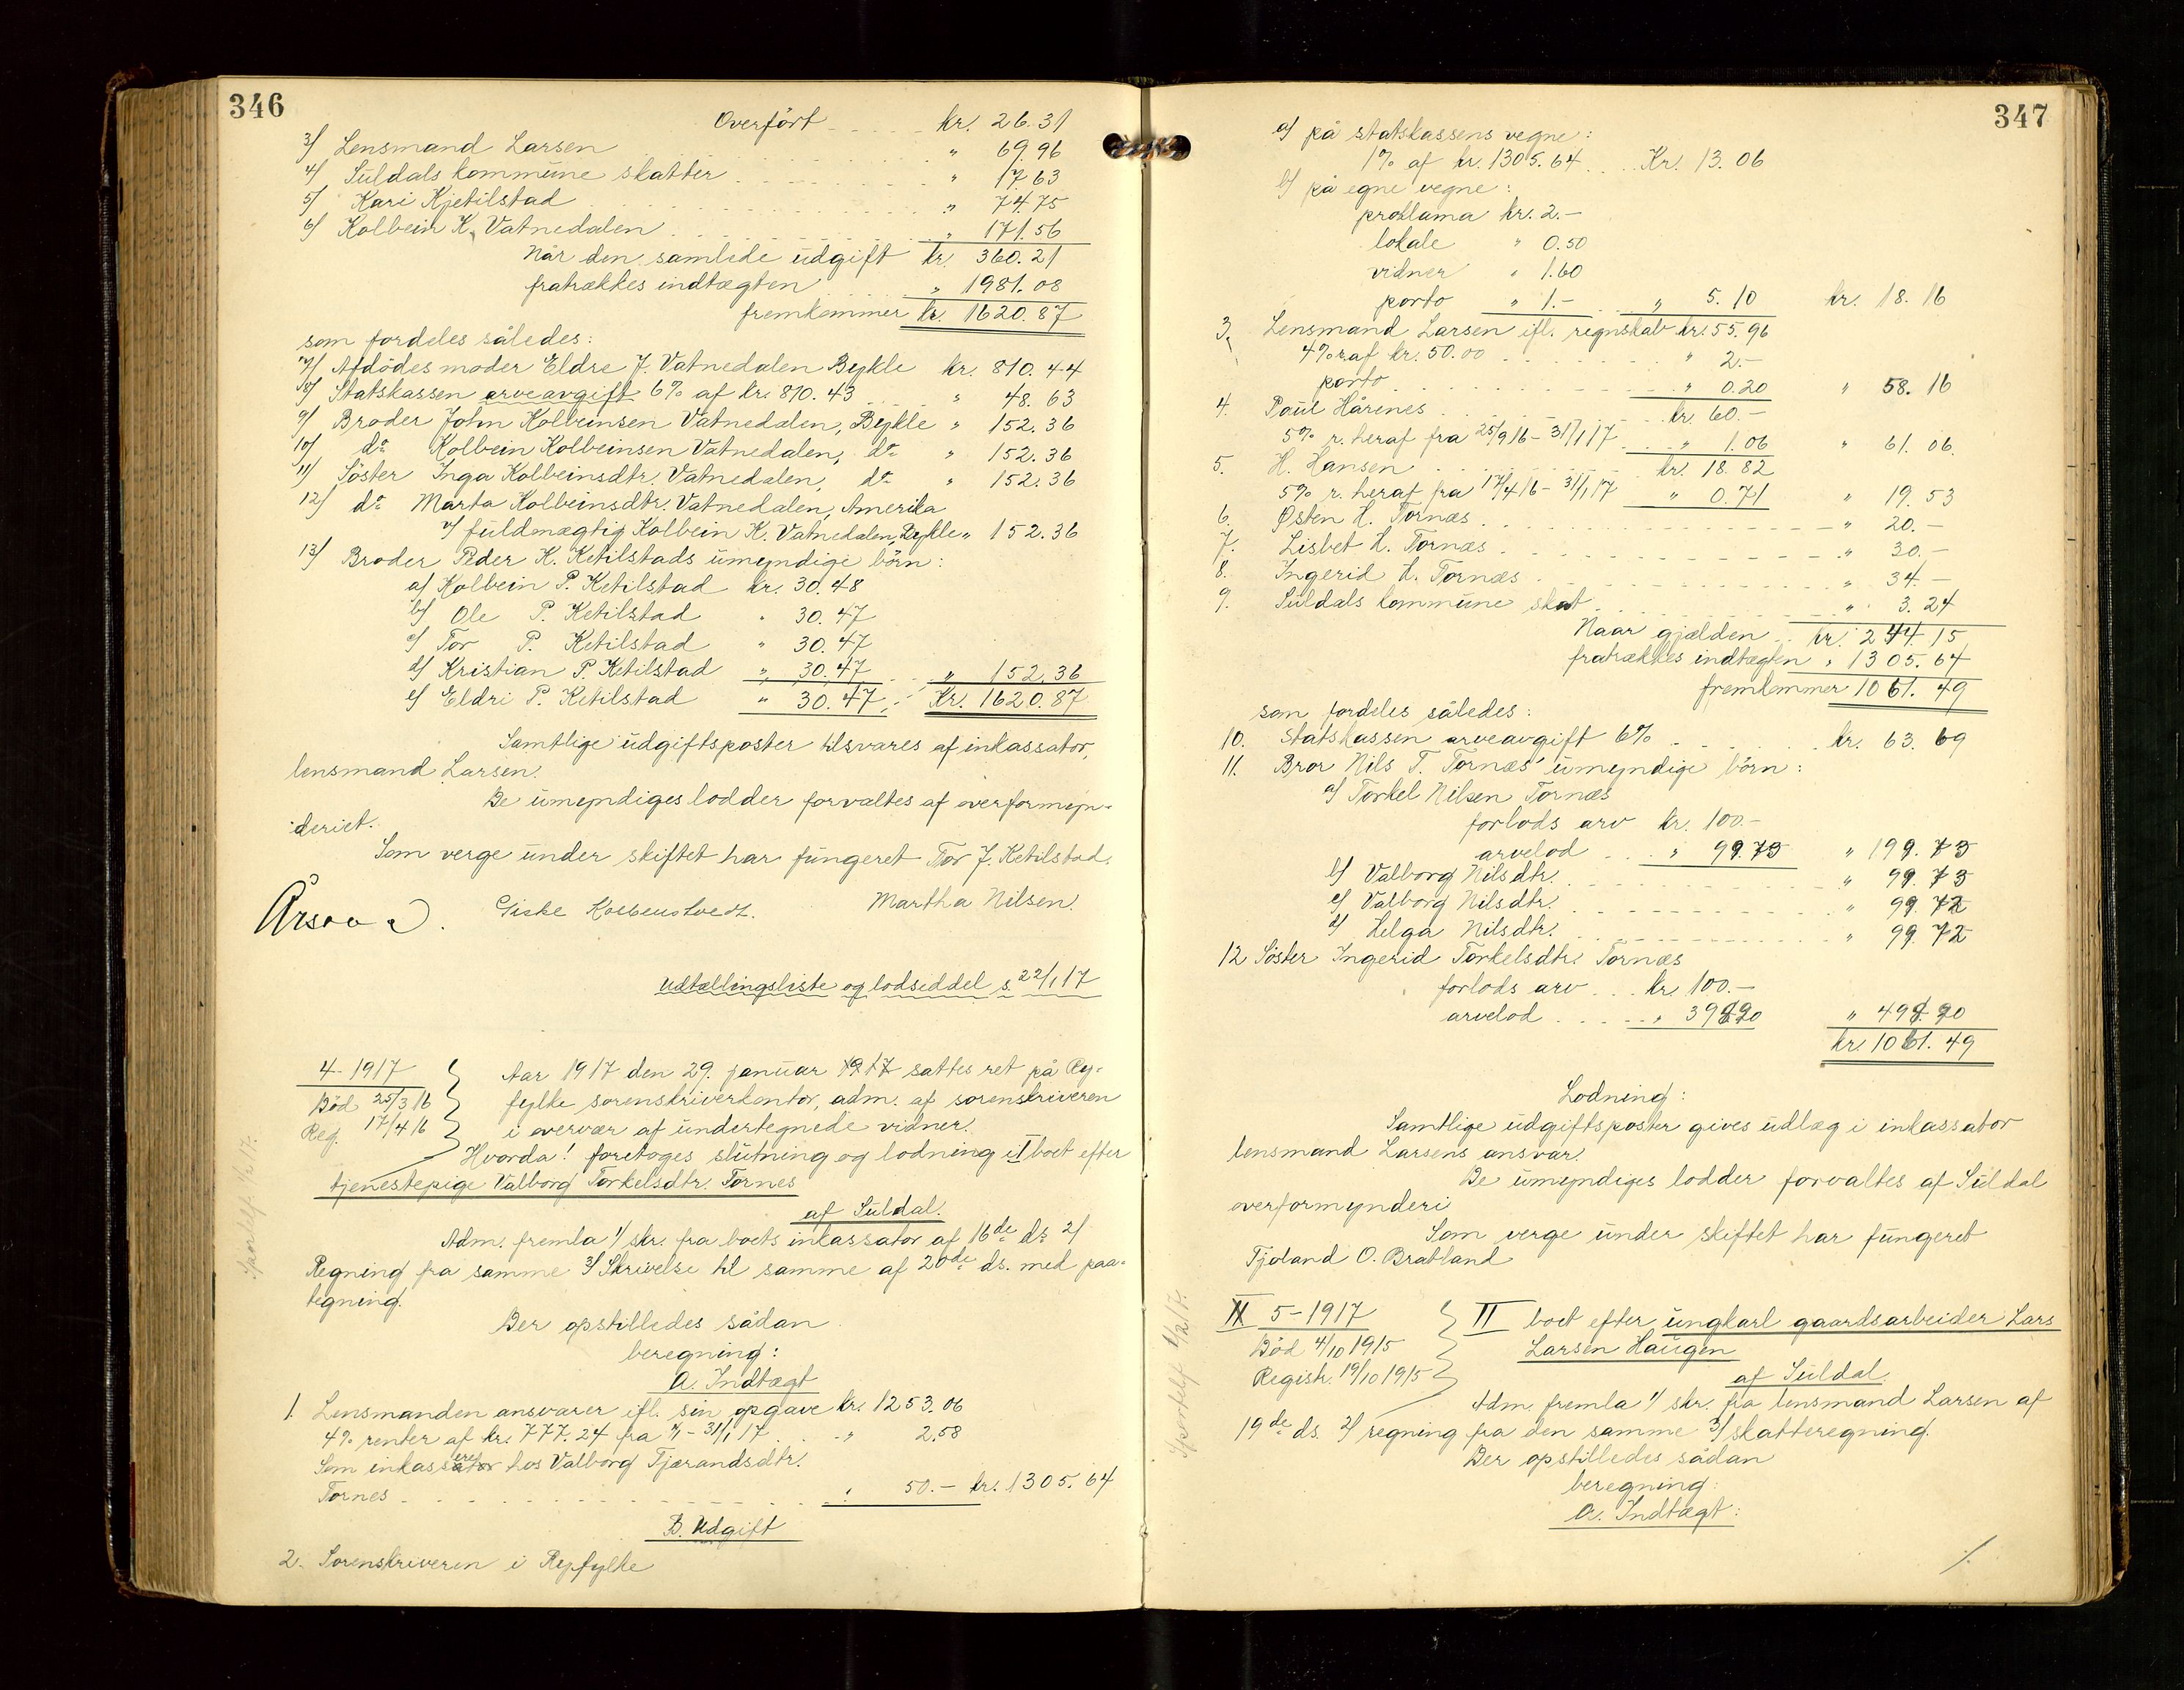 346
Overført ..... kr. 26.31
3/ Lensmand Larsen ..... " 69.96
4/ Suldals kommune skatter ..... " 17.63
5/ Kari Kjetilstad ..... " 74.75
6/ Kolbein K. Vatnedalen ..... " 171.56
Når den samlede udgift kr. 360.21
fratrækkes indtægten ..... " 1981.08
fremkommer kr. 1620.87
som fordeles således:
7/ Afdödes moder Eldre J. Vatnedalen Bykle kr. 810.44
8/ Statskassen arveavgift 6% af kr. 810.43 " 48.63
9/ Broder John Kolbeinsen Vatnedalen, Bykle " 152.36
10/ do Kolbein Kolbeinsen Vatnedalen, do " 152.36
11/ Söster Inga Kolbeinsdtr. Vatnedalen, do " 152.36
12/ do Marta Kolbeinsdtr. Vatnedalen, Amerika
v/ fuldmægtig Kolbein K. Vatnedalen, Bykle " 152.36
13/ Broder Peder K. Ketilstads umyndige börn:
a/ Kolbein P. Ketilstad kr. 30.48
b/ Ole P. Ketilstad " 30.47
c/ Tor P. Ketilstad " 30.47
d/ Kristian P. Ketilstad " 30.47 .. " 152.36
e/ Eldri P. Ketilstad " 30.47, - Kr. 1620.87
Samtlige udgiftsposter tilsvares af inkassator,
lensmand Larsen.
De umyndiges lodder forvaltes af overformyn-
deriet.
Som verge under skiftet har fungeret Tor J. Ketilstad.
Giske Martha Nilsen.
Udtællingsliste og lodseddel s. 22/1 17
4-1917
Död 25/3 16
Reg. 17/4 16
Aar 1917 den 29. januar 1917 sattes ret på Ry-
fylke sorenskriverkontor, adm. af sorenskriveren
i overvær af undertegnede vidner.
Hvorda! foretoges slutning og lodning i I boet efter
tjenestepige Valborg Torkelsdtr. Tornes
af Suldal.
Adm. fremla 1/ skr. fra boets inkassator af 16de ds. 2/
Regning fra samme 3/ Skrivelse til samme af 20de ds. med paa-
tegning.
Der opstilledes sådan
beregning:
A. Indtægt
1. Lensmanden ansvarer ifl. sin opgave kr. 1253.06
4% renter af kr. 777.24 fra 1/1 - 31/1 17 .. " 2.58
Som inkasseret hos Valborg Tjærandsdtr.
Tornes ..... " 50.- kr. 1305.64
B. Udgift
2. Sorenskriveren i Ryfylke
347
a/ på statskassens vegne:
1% af kr. 1305.64 .... Kr. 13.06
b/ på egne vegne:
proklama kr. 2.-
lokale " 0.50
vidner " 1.60
porto " 1.- .. " 5.10 kr. 18.16
3. Lensmand Larsen ifl. regnskab kr. 55.96
4% r. af kr. 50.00 ..... " 2.-
porto ..... " 0.20 " 58.16
4. Paul Hårines ..... kr. 60.-
5% r. heraf fra 25/9 16 - 31/1 17 .. " 1.06 " 61.06.
5. H. Hansen ..... kr. 18.82
5% r. heraf fra 17/4 16 - 31/1 17 " 0.71 " 19.53
6. Østen H. Tornæs ..... " 20.-
7. Lisbet H. Tornæs ..... " 30.-
8. Ingerid H. Tornæs ..... " 34.-
9. Suldals kommune skat ..... " 3.24
Naar gjælden .. kr. 244.15
fratrækkes indtægten " 1305.64
fremkommer 1061.49
som fordeles således:
10. Statskassen arveavgift 6% ..... kr. 63.69
11. Bror Nils T. Tornæs' umyndige börn:
a/ Torkel Nilsen Tornæs
forlods arv kr. 100.-
arvelod ... " 99.73 " 199.73
b/ Valborg Nilsdtr. ..... " 99.73
c/ Valborg Nilsdtr. ..... " 99.72
d/ Helga Nilsdtr. ..... " 99.72
12 Söster Ingerid Torkelsdtr. Tornæs
forlods arv ... kr. 100.-
arvelod ..... " 398.90 " 498.90
kr. 1061.49
Lodning:
Samtlige udgiftsposter gives udlæg i inkassator
lensmand Larsens ansvar.
De umyndiges lodder forvaltes af Suldal
overformynderi
Som verge under skiftet har fungeret
Tjoland O. Bratland
5-1917
Död 4/10 1915
Registr. 19/10 1915
II boet efter ungkarl gaardsarbeider Lars
Larsen Haugen
af Suldal.
Adm. fremla 1/ skr. fra lensmand Larsen af
19de ds. 2/ regning fra den samme 3/ skatteregning.
Der opstilledes sådan
beregning:
A. Indtægt: